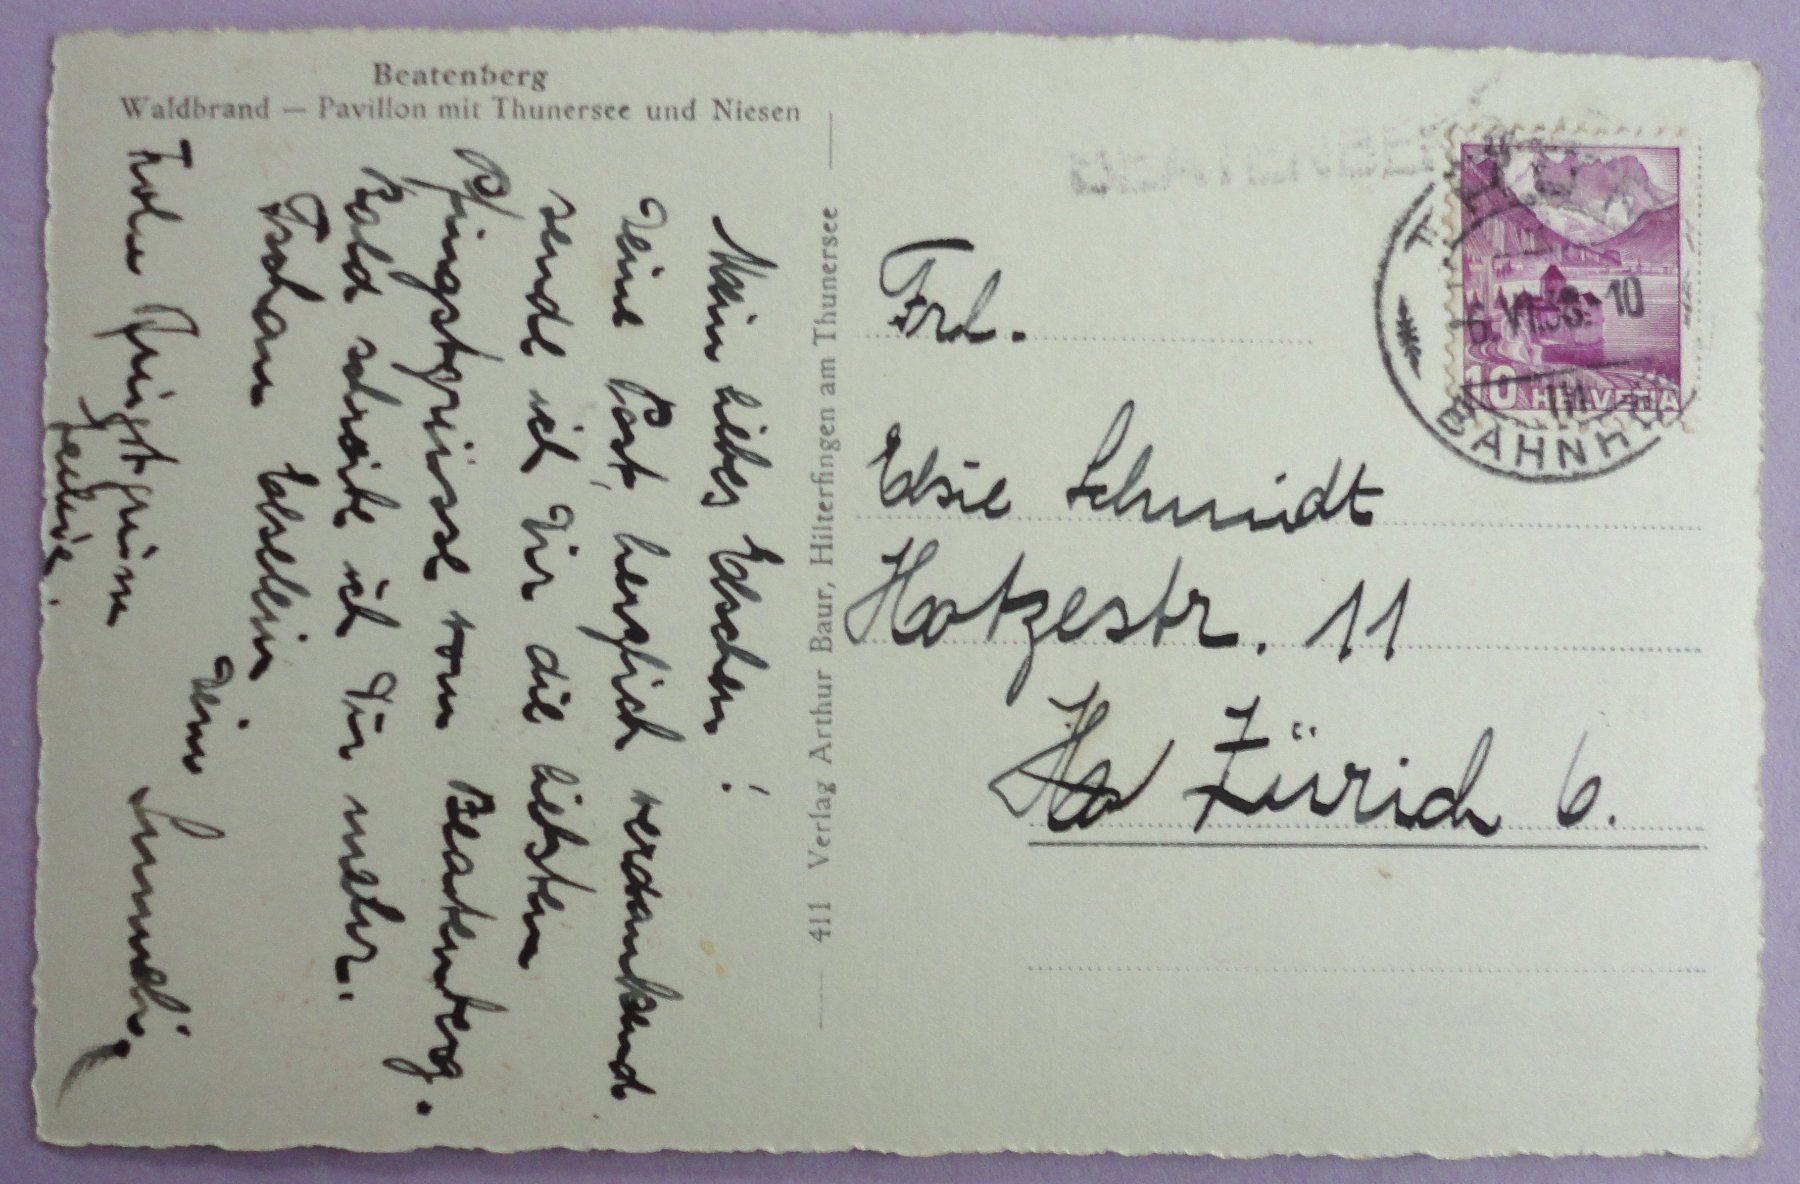 Beatenberg
Waldbrand — Pavillon mit Thunersee und Niesen
Mein liebes Elschen!
Deine Post herzlich verdankend
sende ich Dir die liebsten
Pfingstgrüsse vom Beatenberg.
Bald schreibe ich Dir mehr.
Tschau Elselein
Dein
Frohe Pfingstgrüsse
411 Verlag Arthur Baur, Hilterfingen am Thunersee
Frl.
Elsie Schmidt
Hotzestr. 11
Zürich 6.
10 HELVETIA
6. VI. 38. 10
BAHNHOF